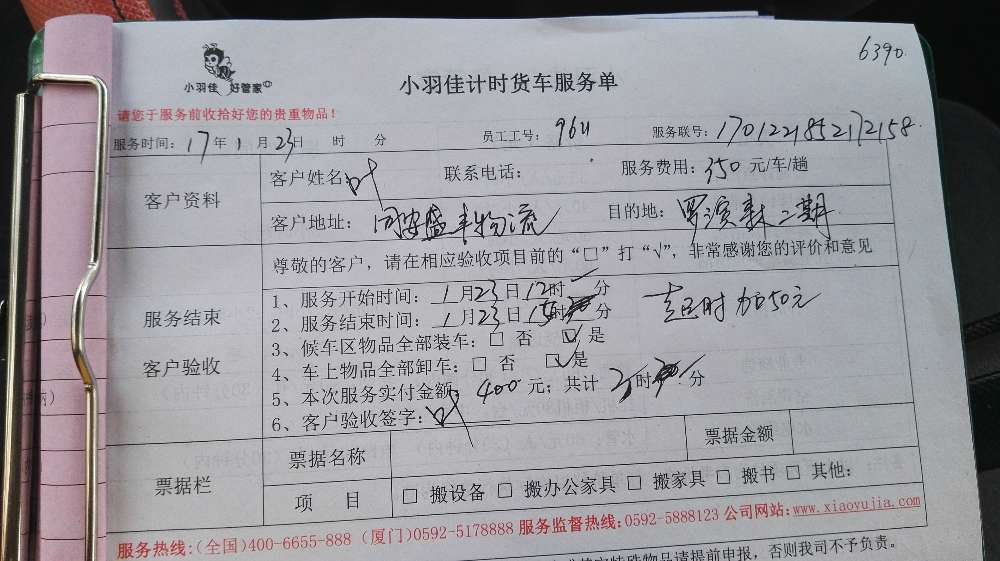 6390
小羽佳 好管家
小羽佳计时货车服务单
请您于服务前收拾好您的贵重物品！
服务时间：17年1月23日 时 分 员工工号：9611 服务联号：1701221852172158
客户资料
客户姓名：叶 联系电话： 服务费用：350元/车/趟
客户地址：同安盛丰物流 目的地：罗宾森二期
尊敬的客户，请在相应验收项目前的“□”打“√”，非常感谢您的评价和意见
服务结束
客户验收
1、服务开始时间：1月23日12时 分
2、服务结束时间：1月23日15时 分
超时加50元
3、候车区物品全部装车：□ 否 ☑ 是
4、车上物品全部卸车：□ 否 ☑ 是
5、本次服务实付金额：400元；共计3时 分
6、客户验收签字：叶
票据栏
票据名称 票据金额
项 目 □ 搬设备 □ 搬办公家具 □ 搬家具 □ 搬书 □ 其他：
服务热线：(全国)400-6655-888 (厦门)0592-5178888 服务监督热线：0592-5888123 公司网站：www.xiaoyujia.com
特殊物品请提前申报，否则我司不予负责。